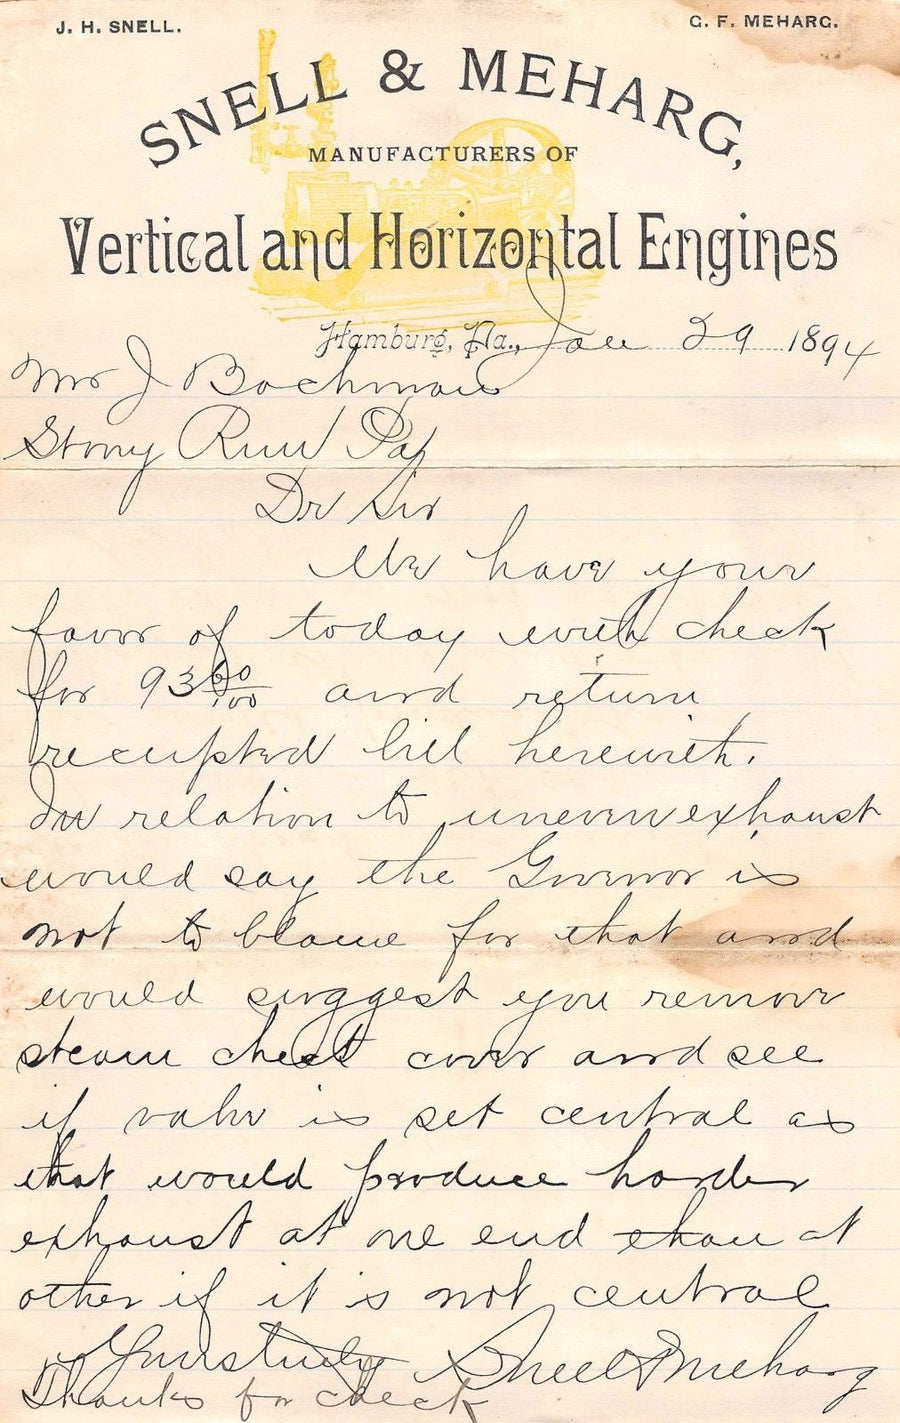 J. H. SNELL.
G. F. MEHARG.
SNELL & MEHARG,
MANUFACTURERS OF
Vertical and Horizontal Engines
Hamburg, Pa., Jan 29 1894
Mr J Bachman
Stony Run Pa
Dr Sir
We have your
favor of today with check
for 93 60/100 and return
receipted bill herewith.
In relation to uneven exhaust
would say the Govenor is
not to blame for that and
would suggest you remove
steam chest cover and see
if valve is set central as
that would produce harder
exhaust at one end than at
other if it is not central
Yours truly Snell & Meharg
Thanks for check